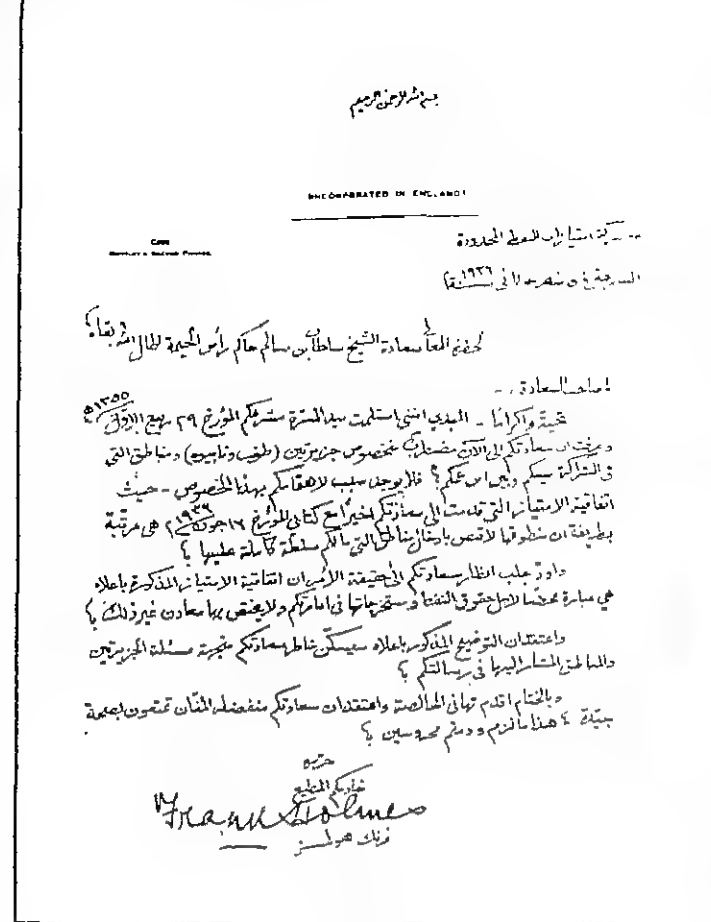 بسم الله الرحمن الرحيم
(INCORPORATED IN ENGLAND)
شركة امتيازات النفط المحدودة
في سنة ١٩٣٦
لحضرة سعادة الشيخ سلطان بن سالم حاكم رأس الخيمة اطال الله بقاه
صاحب السعادة. -
تحية واكراما - انني استلمت بيد المسرة مشرفكم المؤرخ ٢٩ ربيع الاول ١٣٥٥ھ
وعرفت ان سعادتكم الى الآن بخصوص جزيرتين (طنب و) ومناطق التي
في الشراكة بينكم وبين ابن عمكم فلا يوجد سبب بهذا الخصوص - حيث
اتفاقية الامتياز التي قدمت الى سعادتكم اخيرا مع كتابي المؤرخ ١٦ جون ١٩٣٦ هي مرتبة
بطريقة ان منطوقها مناطق التي مالكم سلطة كاملة عليها
واود جلب انظار سعادتكم الى حقيقة الأمر ان اتفاقية الامتياز المذكورة باعلاه
هي عبارة محضا لاجل حقوق النفط ومستخرجاتها في امارتكم ولا يختص بها معادن غير ذلك
واعتقد ان التوضيح المذكور باعلاه سيسكن خاطر سعادتكم متجهة مسئلة الجزيرتين
والمناطق المشار اليها في رسالتكم
وبالختام اقدم تهاني الخالصة واعتقد ان سعادتكم من فضله المنان تمتعون بصحة
جيدة هذا ما لزم ودمتم محروسين
حرره
المطيع
Frank Holmes
فرنك هولمز